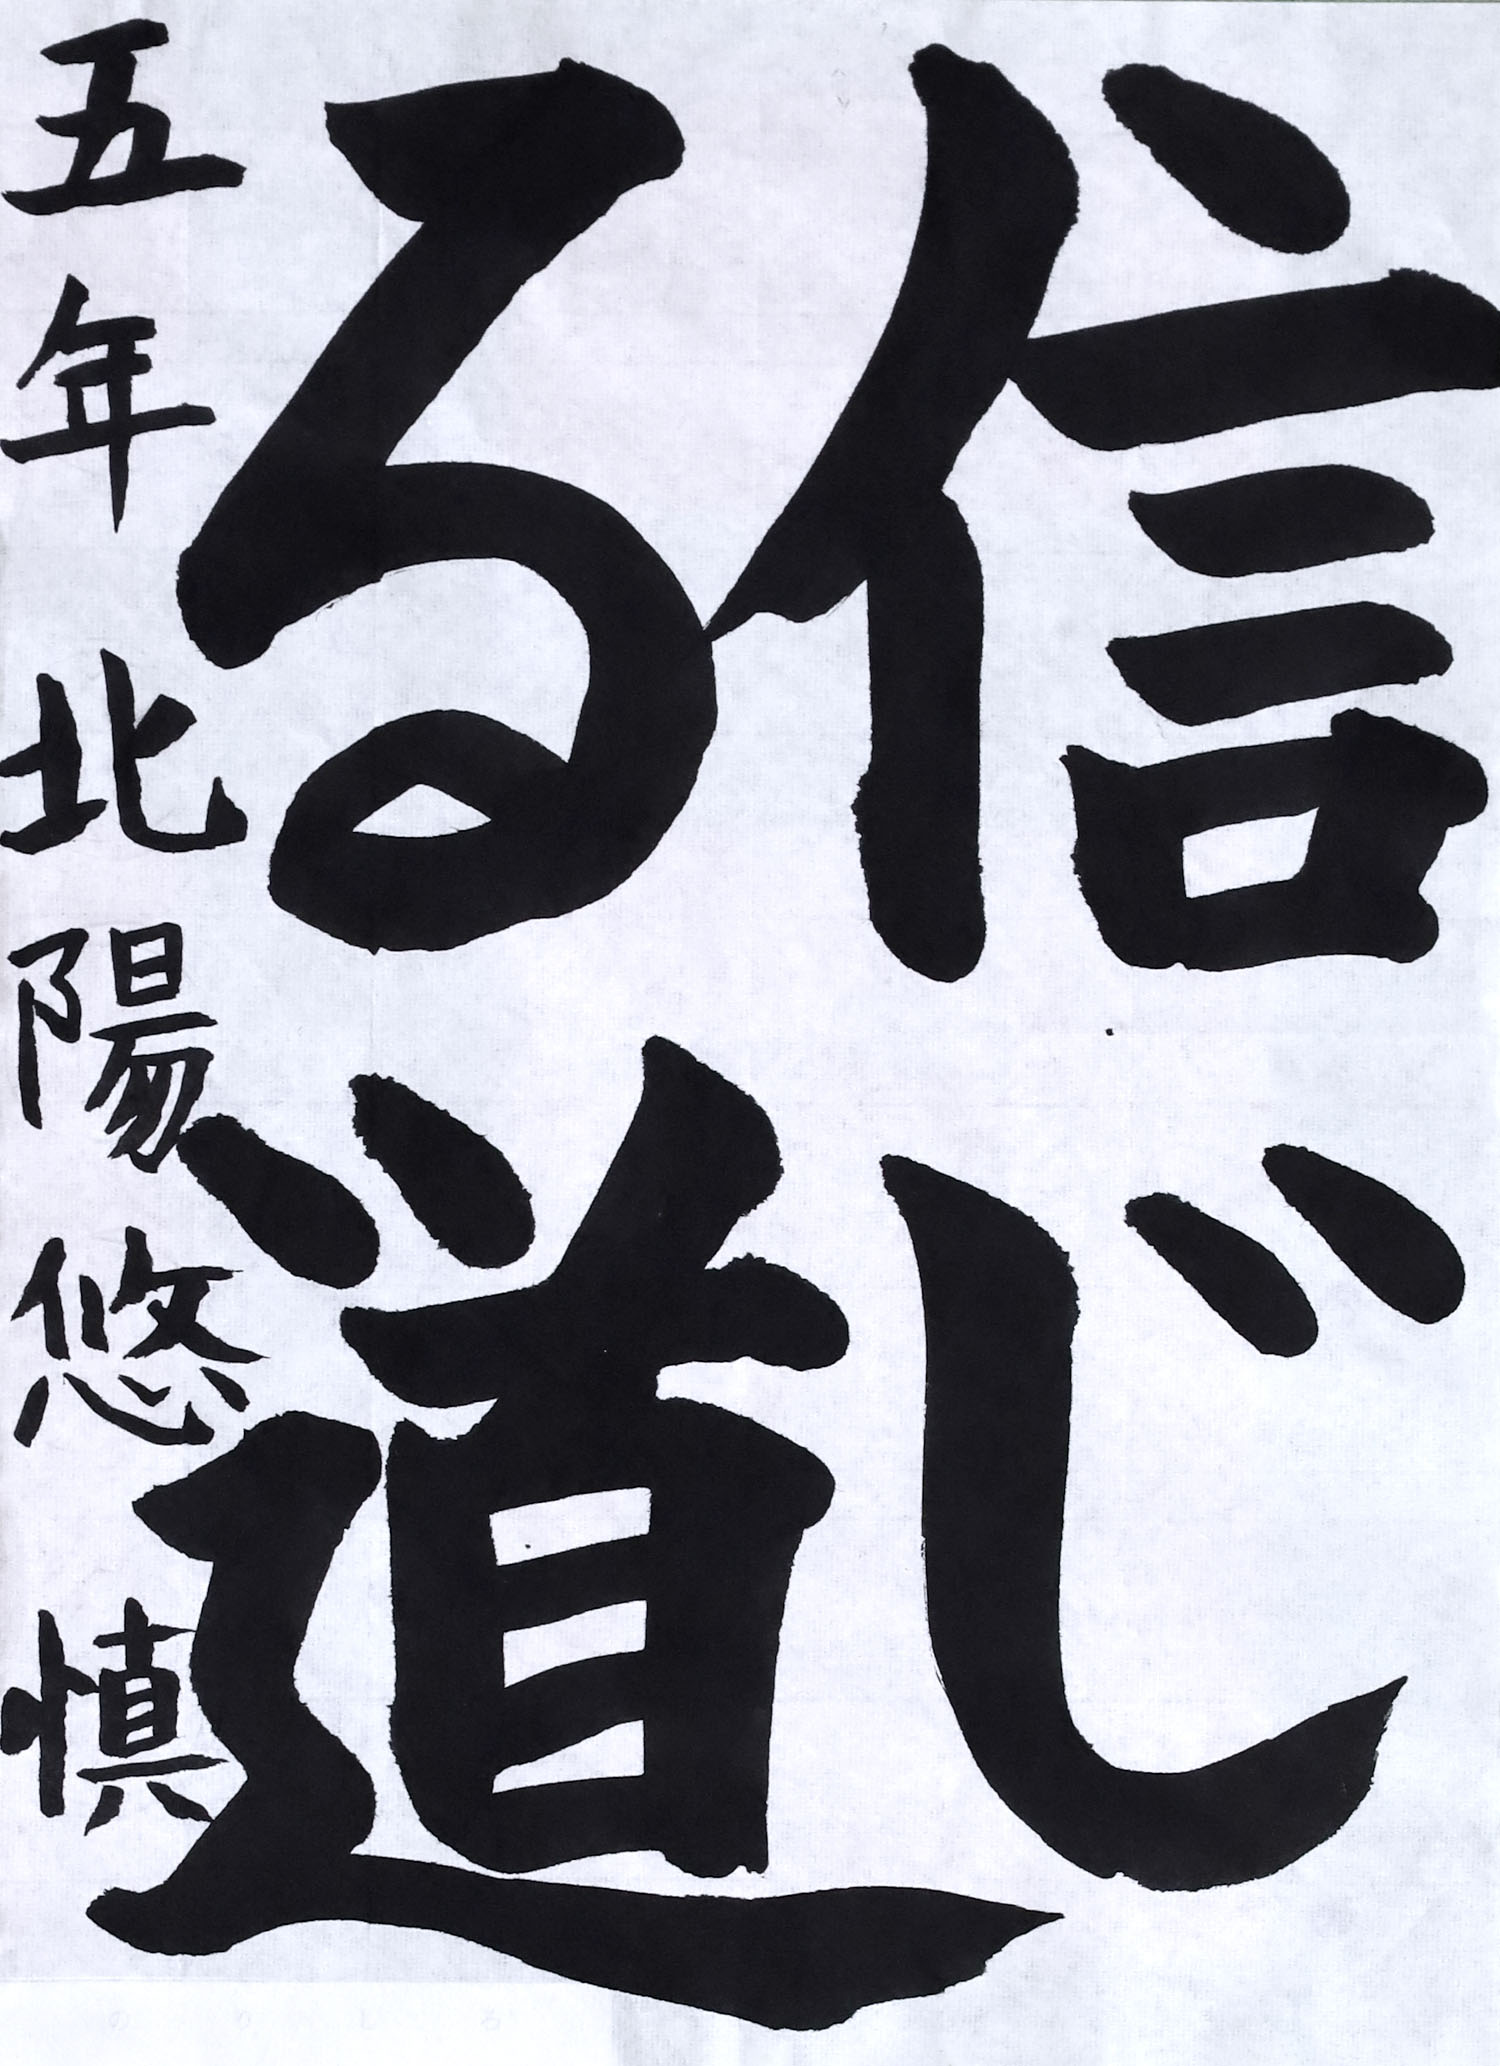 信じ
る道
五年北陽悠慎